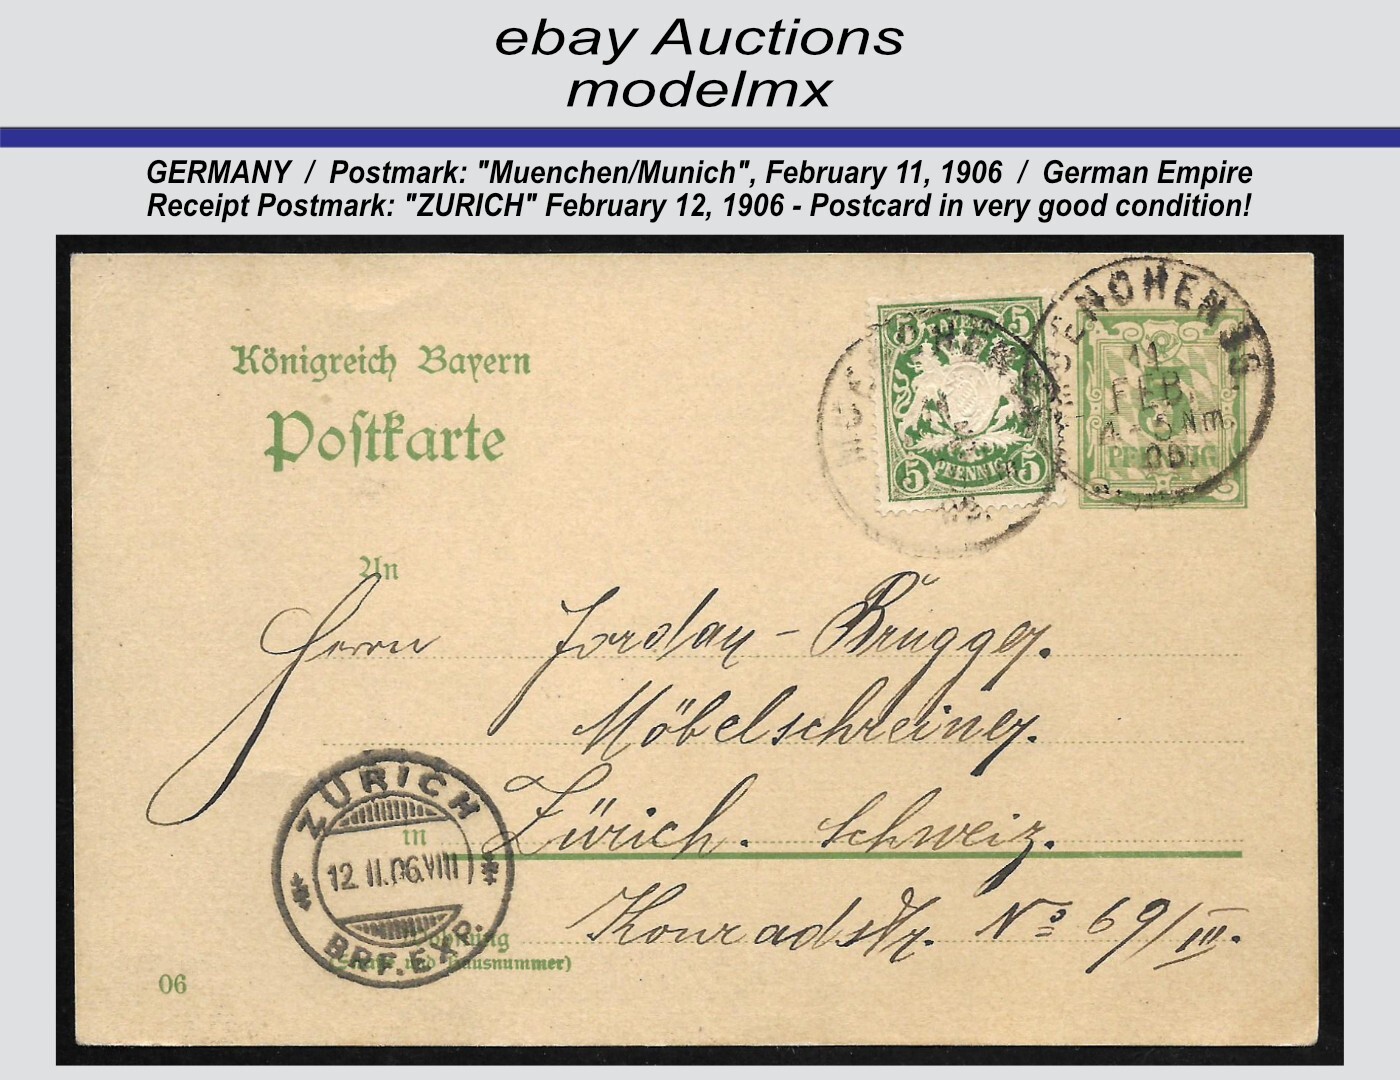 ebay Auctions
modelmx
GERMANY / Postmark: "Muenchen/Munich", February 11, 1906 / German Empire
Receipt Postmark: "ZURICH" February 12, 1906 - Postcard in very good condition!
Königreich Bayern
Postkarte
5 5
5 PFENNIG 5
MUENCHEN 16.
11
FEB.
4-5 Nm.
06.
An
Herrn Jordan-Brugger.
Möbelschreiner.
in Zürich. Schweiz.
Konradstr. No 69/III.
Wohnung
(Straße und Hausnummer)
ZÜRICH
12.II.06.VIII
BRF.EXP.
06